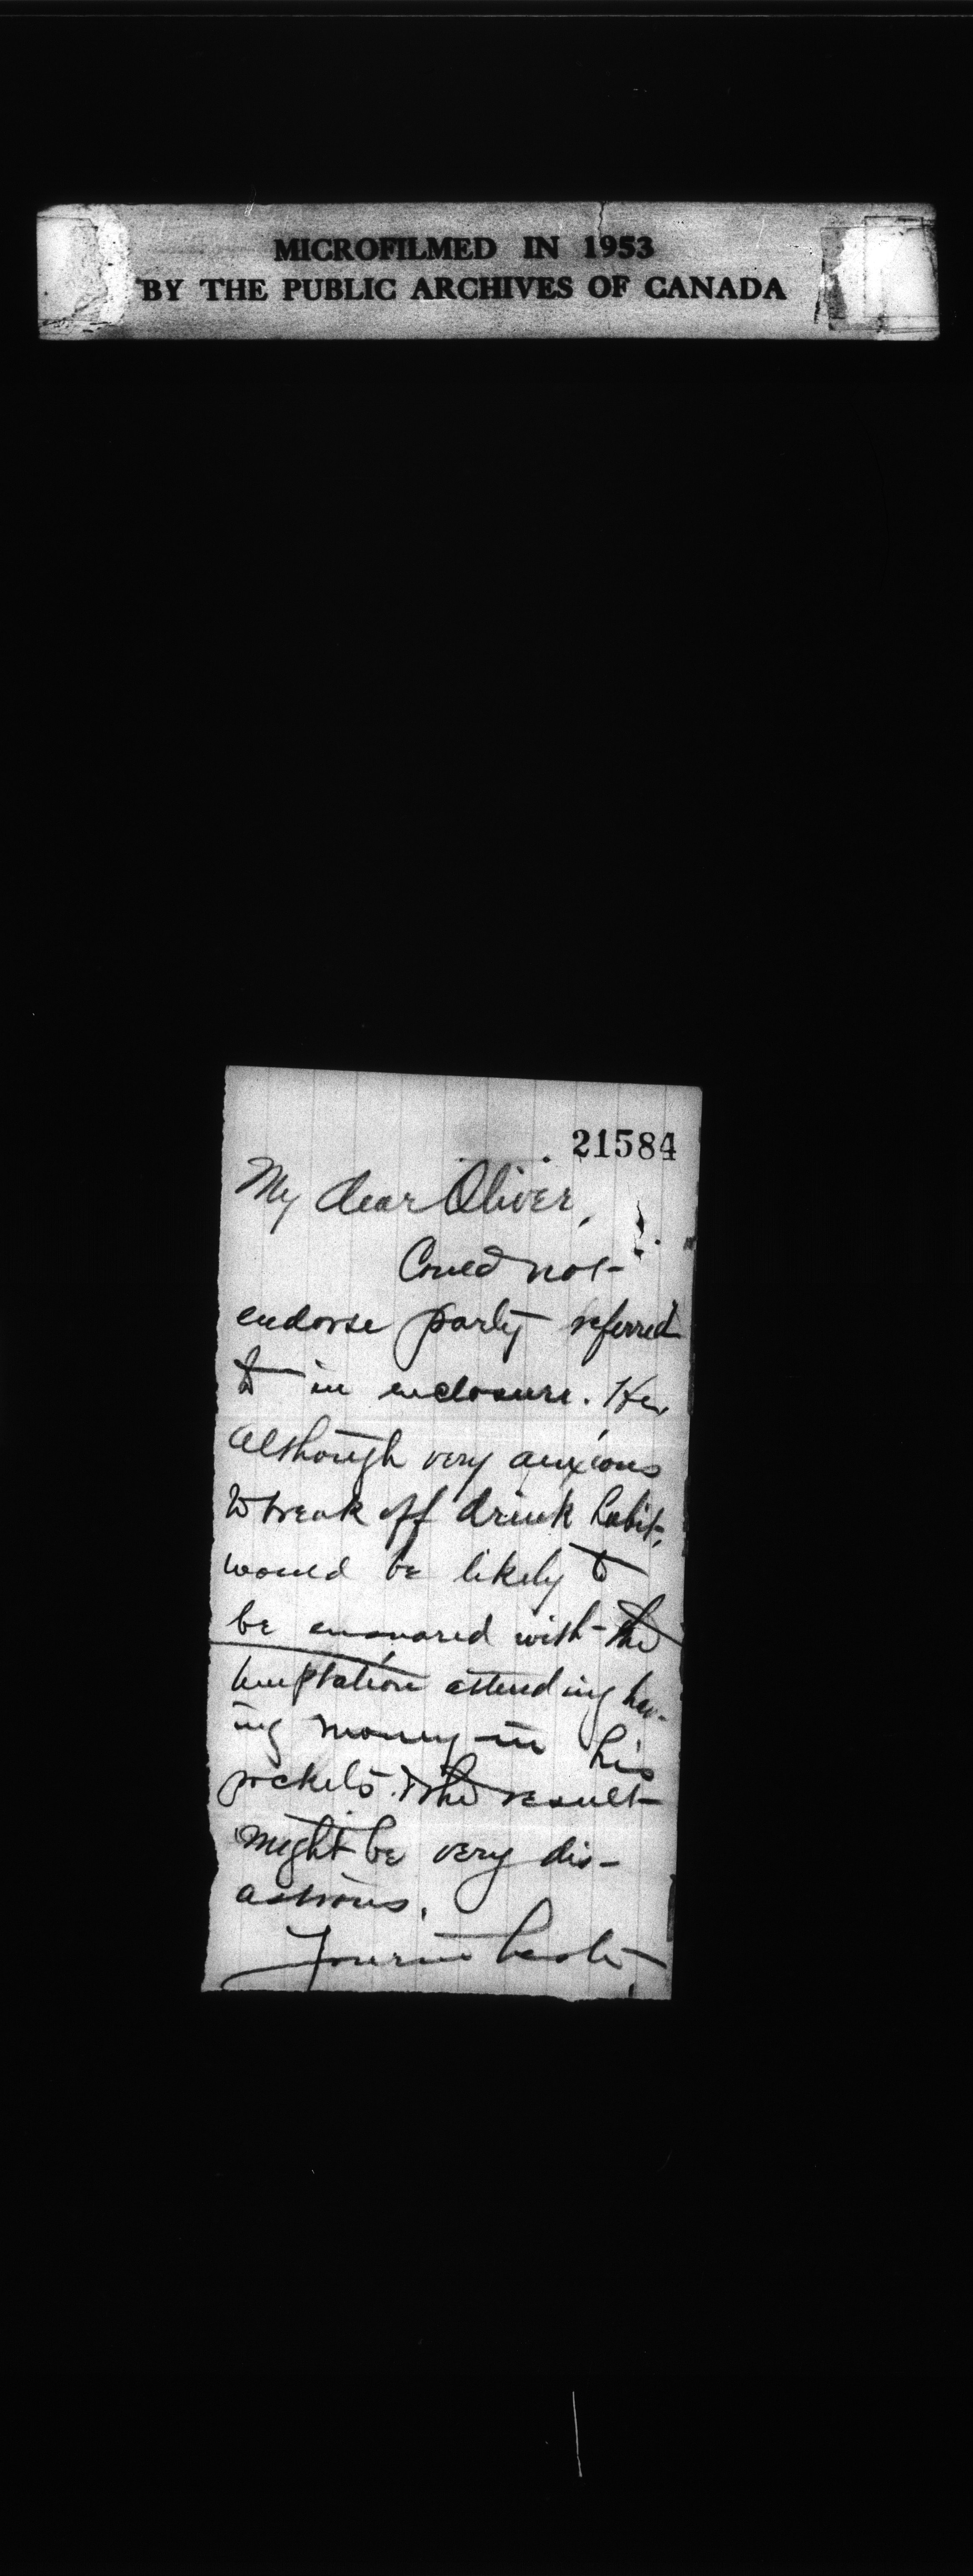 MICROFILMED IN 1953
BY THE PUBLIC ARCHIVES OF CANADA
21584
My dear Oliver,
Could not
endorse party referred
to in enclosure. He,
although very anxious
to break off drink habit,
would be likely to
be ensnared with the
temptation attending hav-
ing money in his
pockets & the result
might be very dis-
astrous.
Yours